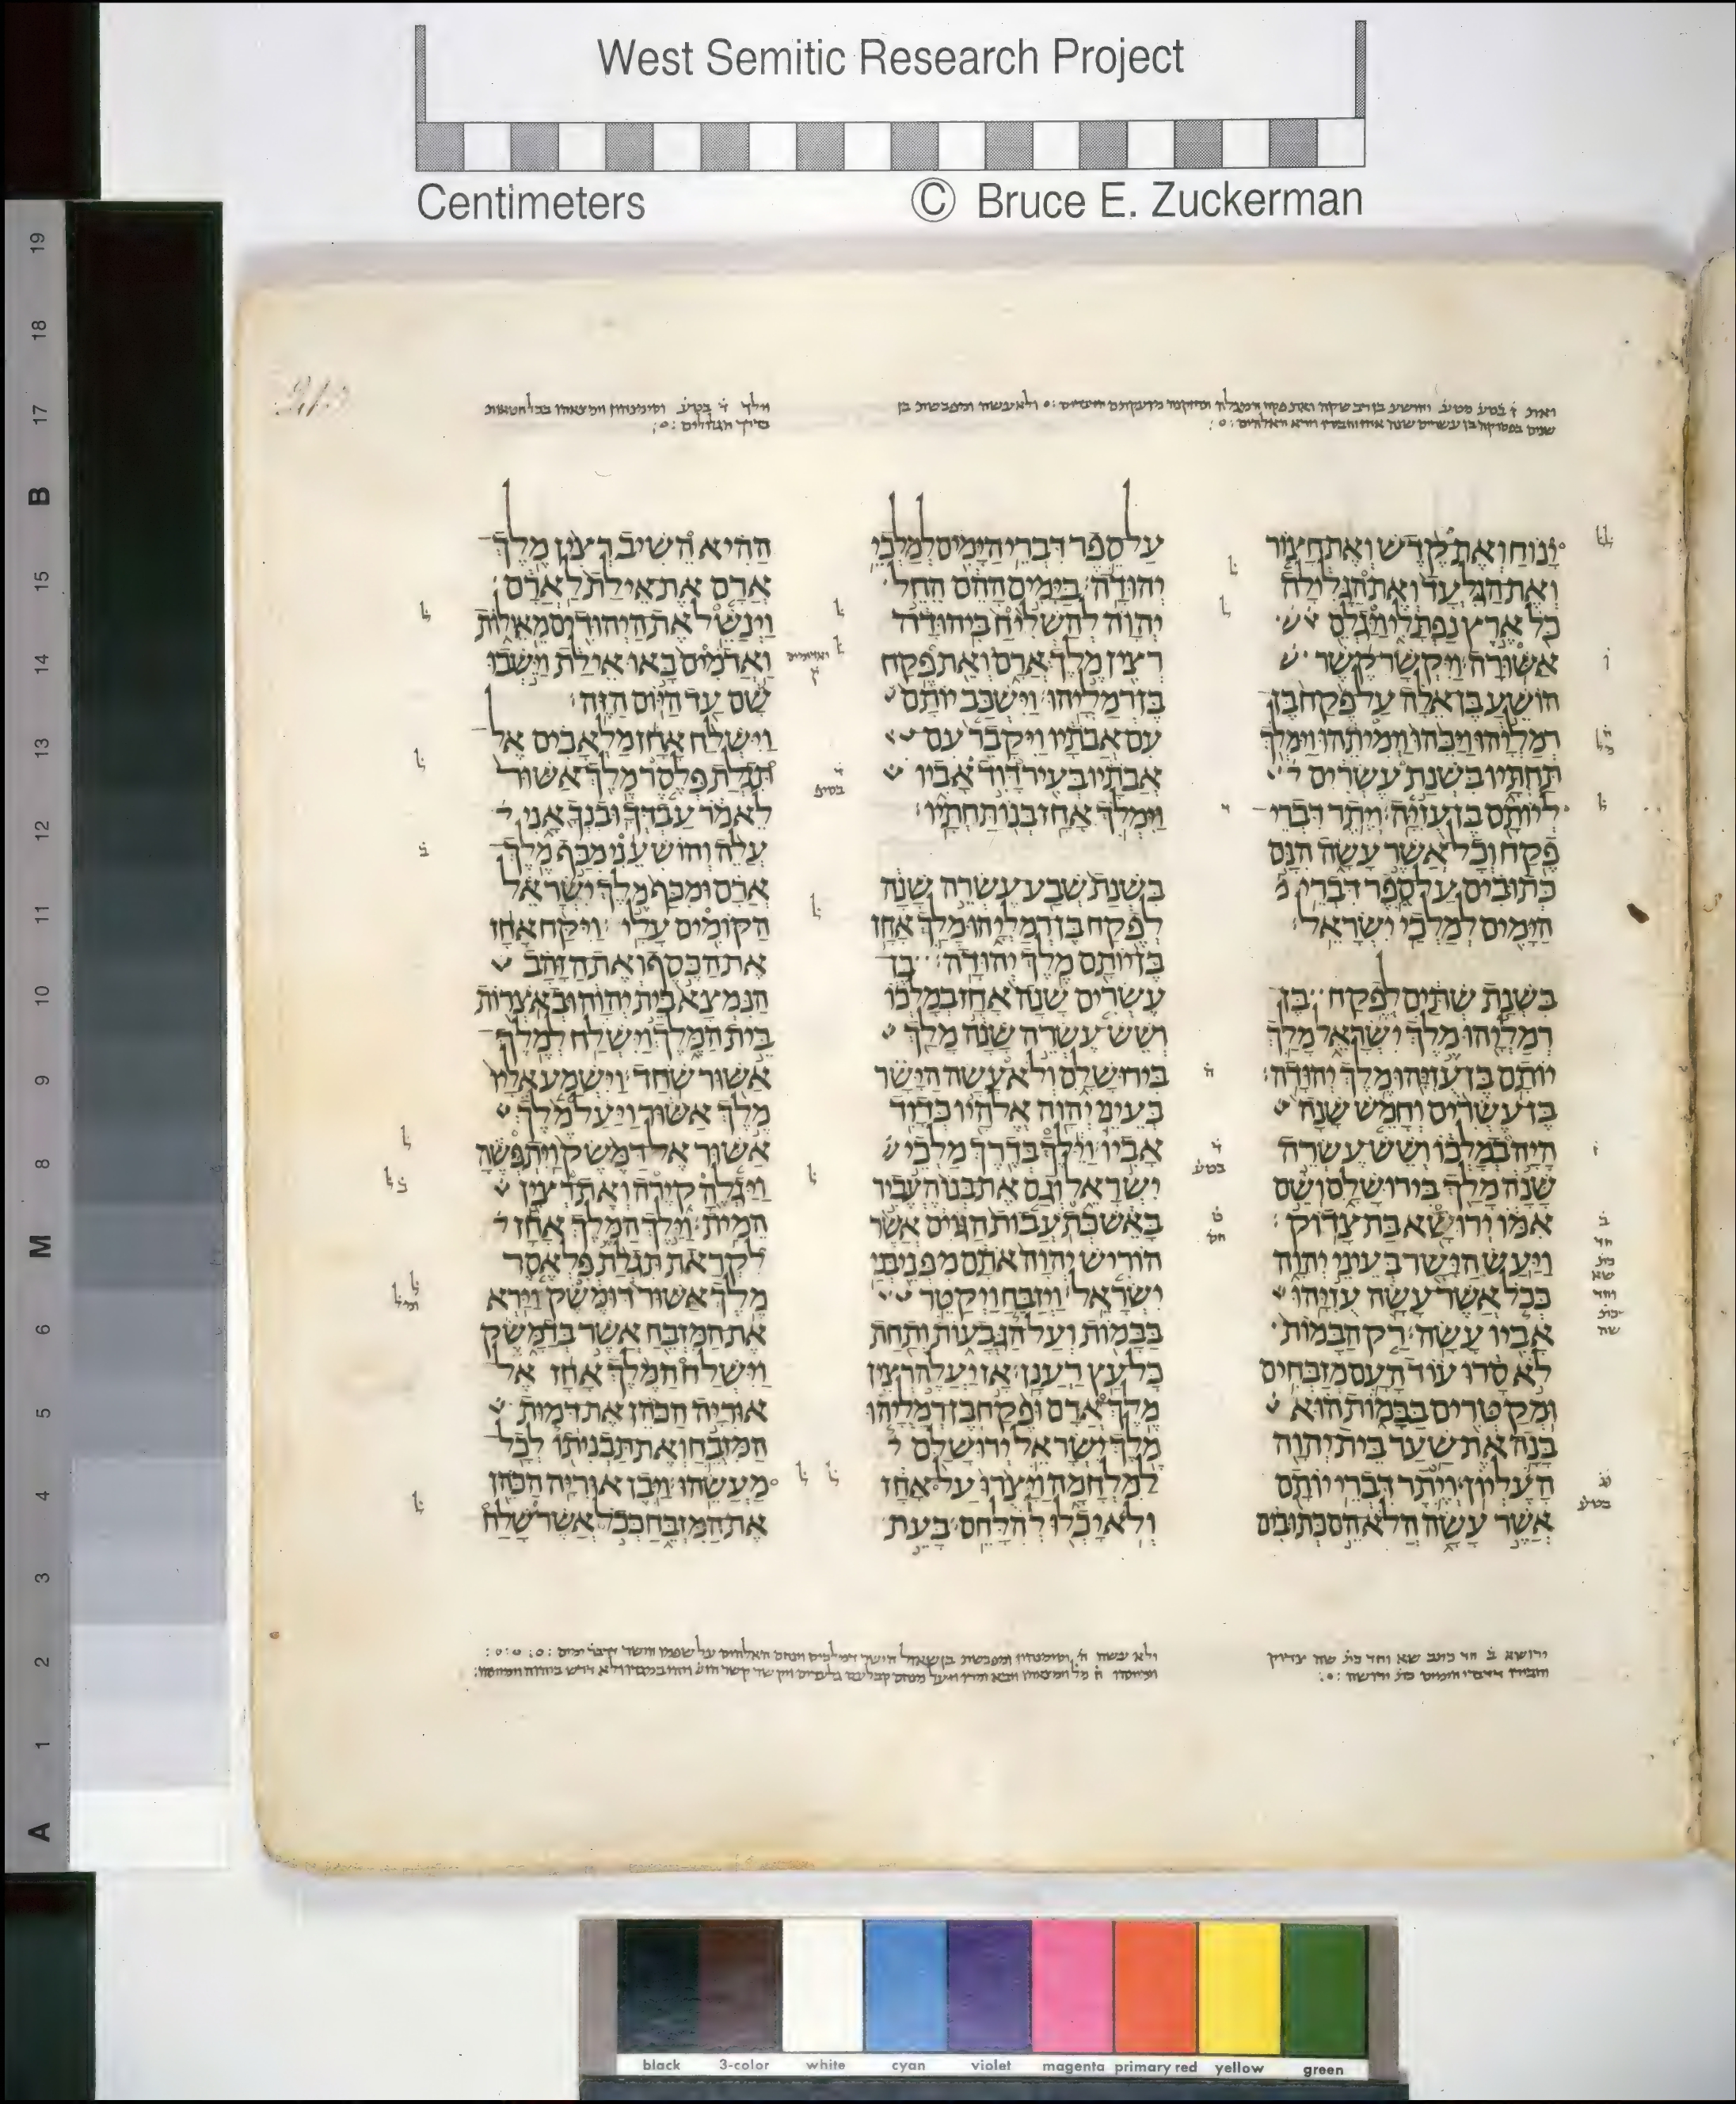 West Semitic Research Project
Centimeters © Bruce E. Zuckerman
ינוח ואת קדש ואת חצור
ואת הגלעד ואת הגלילה
כל ארץ נפתלי ויגלם
אשורה׃ ויקשר קשר
הושע בן אלה על פקח בן
רמליהו ויכהו וימיתהו וימלך
תחתיו בשנת עשרים
ליותם בן עזיה׃ ויתר דברי
פקח וכל אשר עשה הנם
כתובים על ספר דברי
הימים למלכי ישראל׃
בשנת שתים לפקח בן
רמליהו מלך ישראל מלך
יותם בן עזיהו מלך יהודה׃
בן עשרים וחמש שנה
היה במלכו ושש עשרה
שנה מלך בירושלם ושם
אמו ירושא בת צדוק׃
ויעש הישר בעיני יהוה
ככל אשר עשה עזיהו
אביו עשה׃ רק הבמות
לא סרו עוד העם מזבחים
ומקטרים בבמות הוא
בנה את שער בית יהוה
העליון׃ ויתר דברי יותם
אשר עשה הלא הם כתובים
על ספר דברי הימים למלכי
יהודה׃ בימים ההם החל
יהוה להשליח ביהודה
רצין מלך ארם ואת פקח
בן רמליהו׃ וישכב יותם
עם אבתיו ויקבר עם
אבתיו בעיר דוד אביו
וימלך אחז בנו תחתיו׃
בשנת שבע עשרה שנה
לפקח בן רמליהו מלך אחז
בן יותם מלך יהודה׃ בן
עשרים שנה אחז במלכו
ושש עשרה שנה מלך
בירושלם ולא עשה הישר
בעיני יהוה אלהיו כדוד
אביו׃ וילך בדרך מלכי
ישראל וגם את בנו העביר
באש כתעבות הגוים אשר
הוריש יהוה אתם מפני בני
ישראל׃ ויזבח ויקטר
בבמות ועל הגבעות ותחת
כל עץ רענן׃ אז יעלה רצין
מלך ארם ופקח בן רמליהו
מלך ישראל ירושלם
למלחמה ויצרו על אחז
ולא יכלו להלחם׃ בעת
ההיא השיב רצין מלך
ארם את אילת לארם
וינשל את היהודים מאילות
וארמים באו אילת וישבו
שם עד היום הזה׃
וישלח אחז מלאכים אל
תגלת פלסר מלך אשור
לאמר עבדך ובנך אני
עלה והושעני מכף מלך
ארם ומכף מלך ישראל
הקומים עלי׃ ויקח אחז
את הכסף ואת הזהב
הנמצא בית יהוה ובאצרות
בית המלך וישלח למלך
אשור שחד׃ וישמע אליו
מלך אשור ויעל מלך
אשור אל דמשק ויתפשה
ויגלה קירה ואת רצין
המית׃ וילך המלך אחז
לקראת תגלת פלאסר
מלך אשור דומשק וירא
את המזבח אשר בדמשק
וישלח המלך אחז אל
אוריה הכהן את דמות
המזבח ואת תבניתו לכל
מעשהו׃ ויבן אוריה הכהן
את המזבח ככל אשר שלח
19
18
17
B
15
14
13
12
11
10
9
8
M
6
5
4
3
2
1
A
black 3-color white cyan violet magenta primary red yellow green